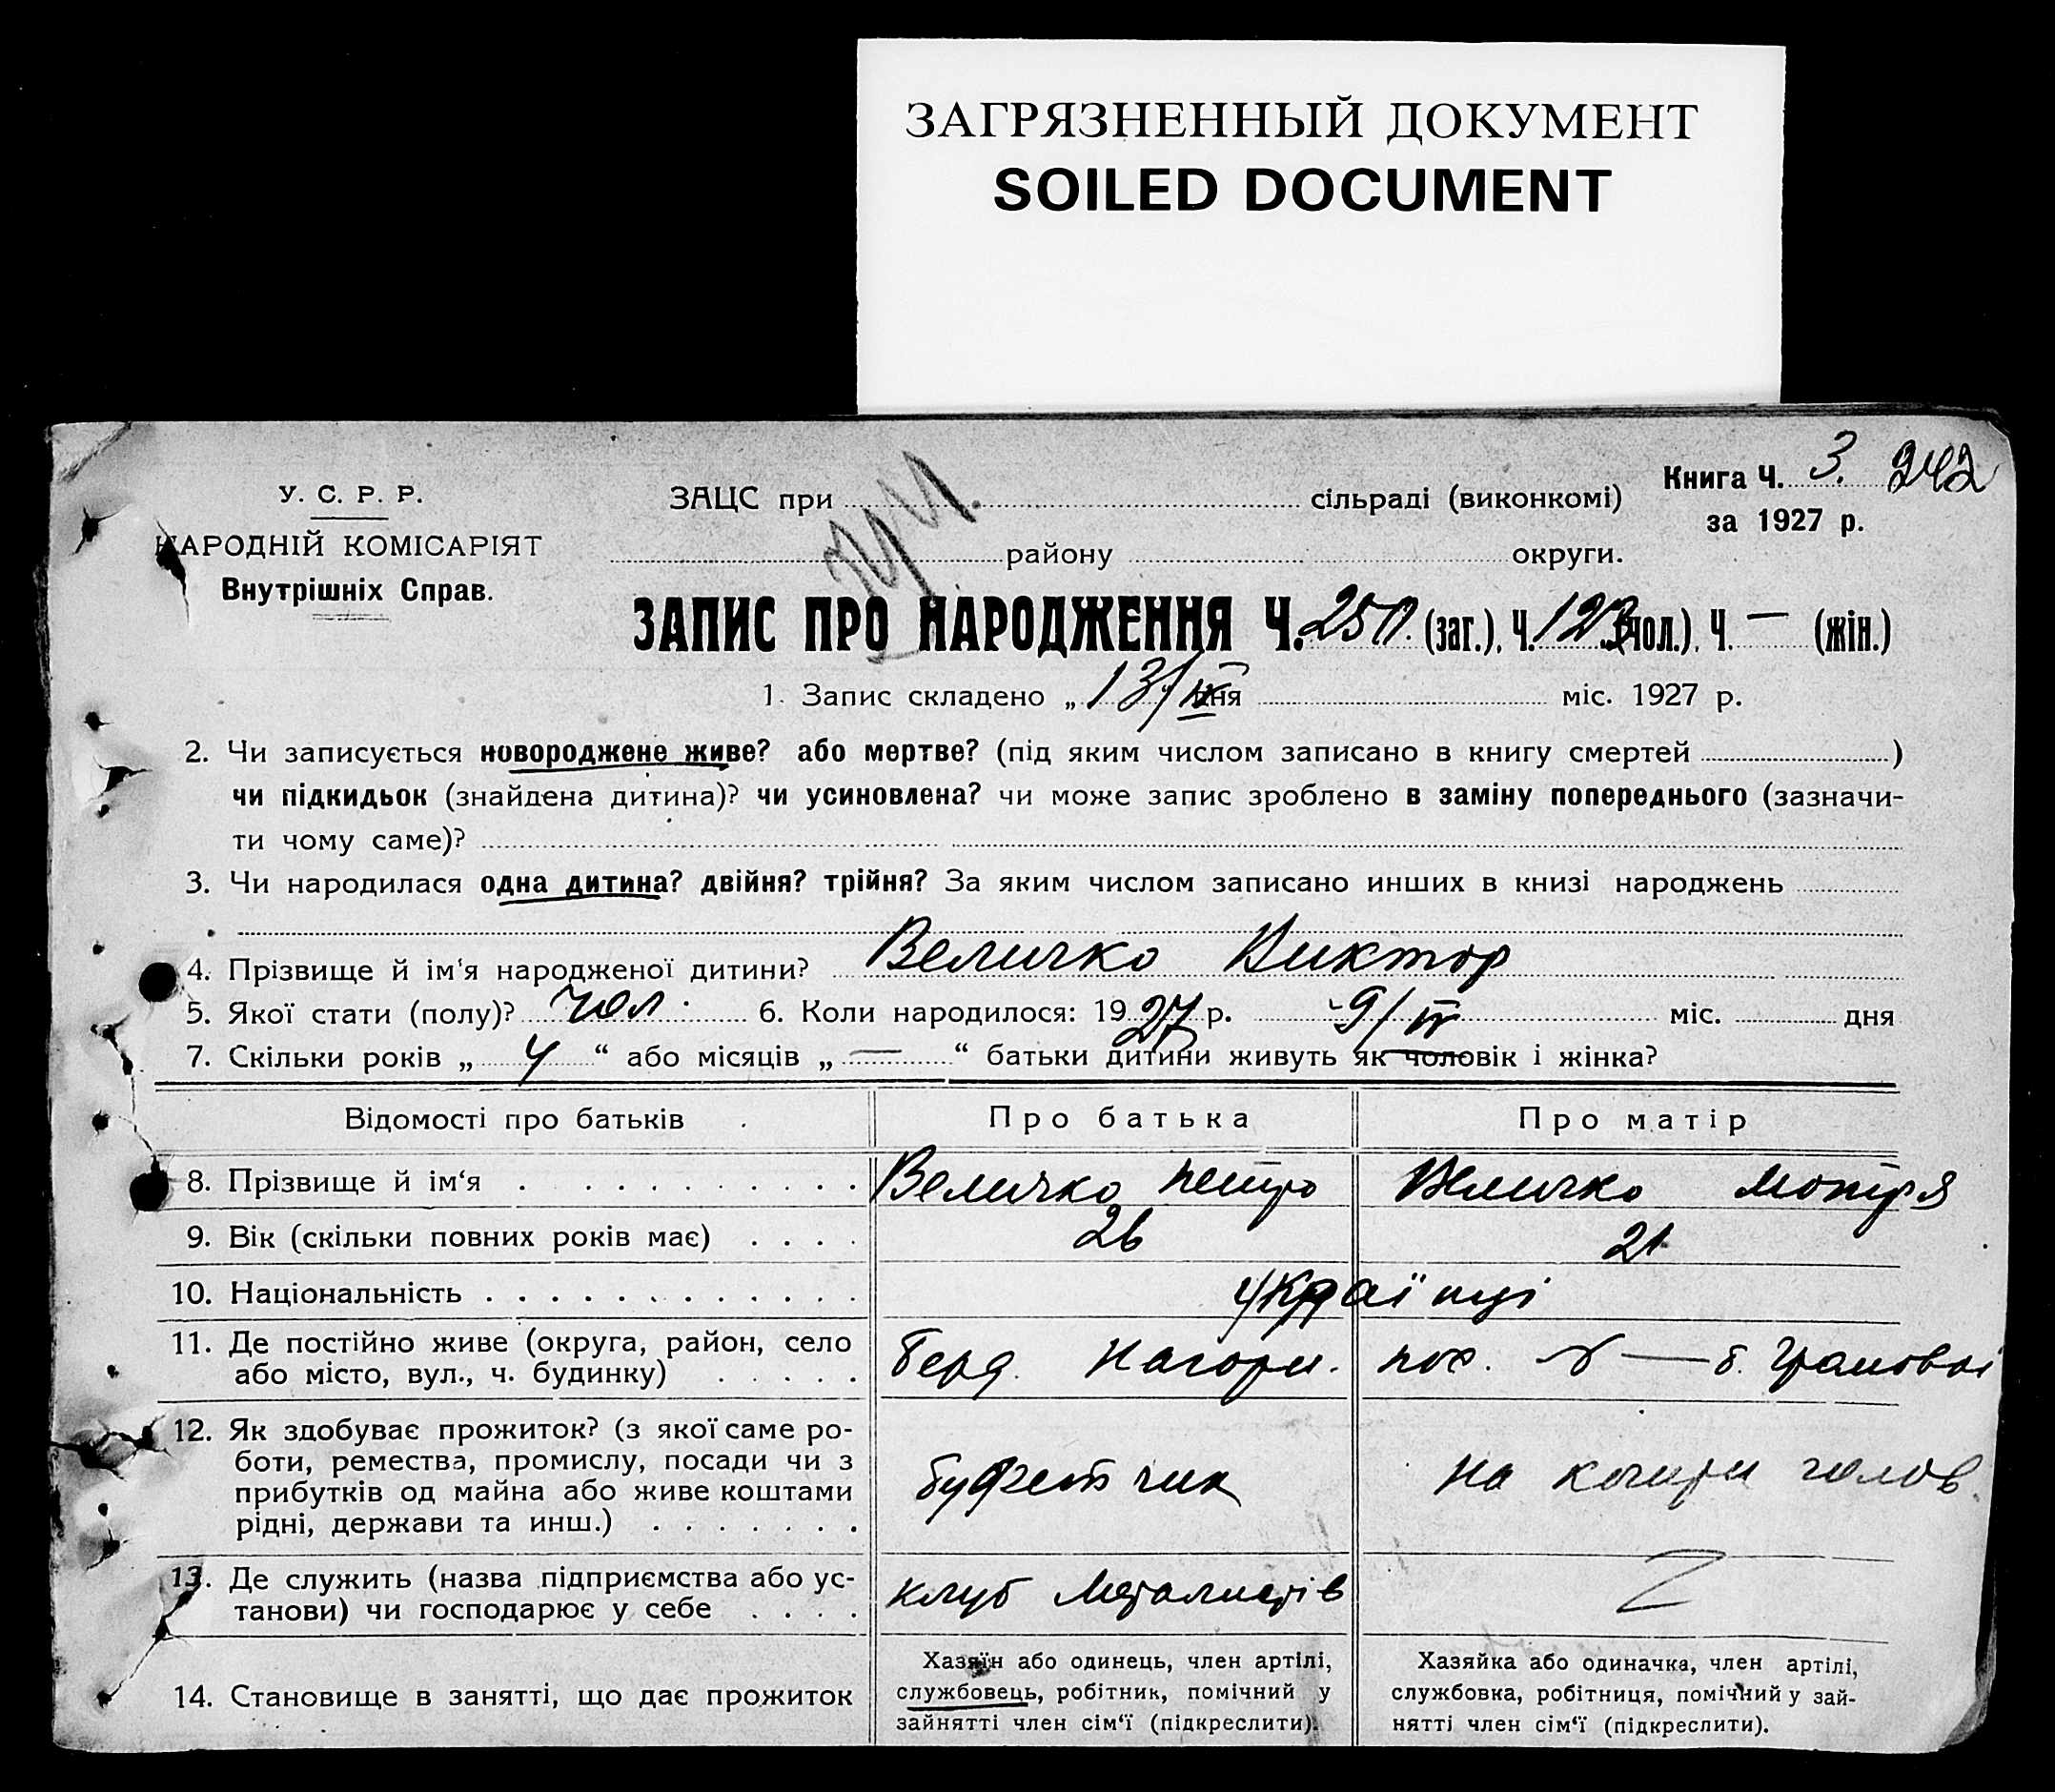 ЗАГРЯЗНЕННЫЙ ДОКУМЕНТ
SOILED DOCUMENT
У. С. Р. Р.
НАРОДНІЙ КОМІСАРІЯТ
Внутрішніх Справ.
ЗАЦС при сільраді (виконкомі)
району округи.
Книга Ч. 3. 242
за 1927 р.
ЗАПИС ПРО НАРОДЖЕННЯ Ч. 250. (заг.), Ч. 123 (чол.), Ч. — (жін.)
1. Запис складено „ 13/IV “ дня міс. 1927 р.
2. Чи записується новороджене живе? або мертве? (під яким числом записано в книгу смертей )
чи підкидьок (знайдена дитина)? чи усиновлена? чи може запис зроблено в заміну попереднього (зазначи-
ти чому саме)?
3. Чи народилася одна дитина? двійня? трійня? За яким числом записано инших в книзі народжень
4. Прізвище й ім‘я народженої дитини? Величко Виктор
5. Якої стати (полу)? чол. 6. Коли народилося: 1927 р. 9/IV міс. дня
7. Скільки років „ 4 “ або місяців „ — “ батьки дитини живуть як чоловік і жінка?
Відомості про батьків Про батька Про матір
8. Прізвище й ім‘я Величко Петро Величко Мотря
9. Вік (скільки повних років має) 26 21
10. Національність Українці
11. Де постійно живе (округа, район, село
або місто, вул., ч. будинку) Берд. Нагорн. б.
12. Як здобуває прожиток? (з якої саме ро-
боти, ремества, промислу, посади чи з
прибутків од майна або живе коштами
рідні, держави та инш.) буфетчик на кошти чолов.
13. Де служить (назва підприємства або ус-
танови) чи господарює у себе клуб Металистів
14. Становище в занятті, що дає прожиток
Хазяїн або одинець, член артілі,
службовець, робітник, помічний у
зайнятті член сім‘ї (підкреслити).
Хазяйка або одиначка, член артілі,
службовка, робітниця, помічний у зай-
нятті член сім‘ї (підкреслити).